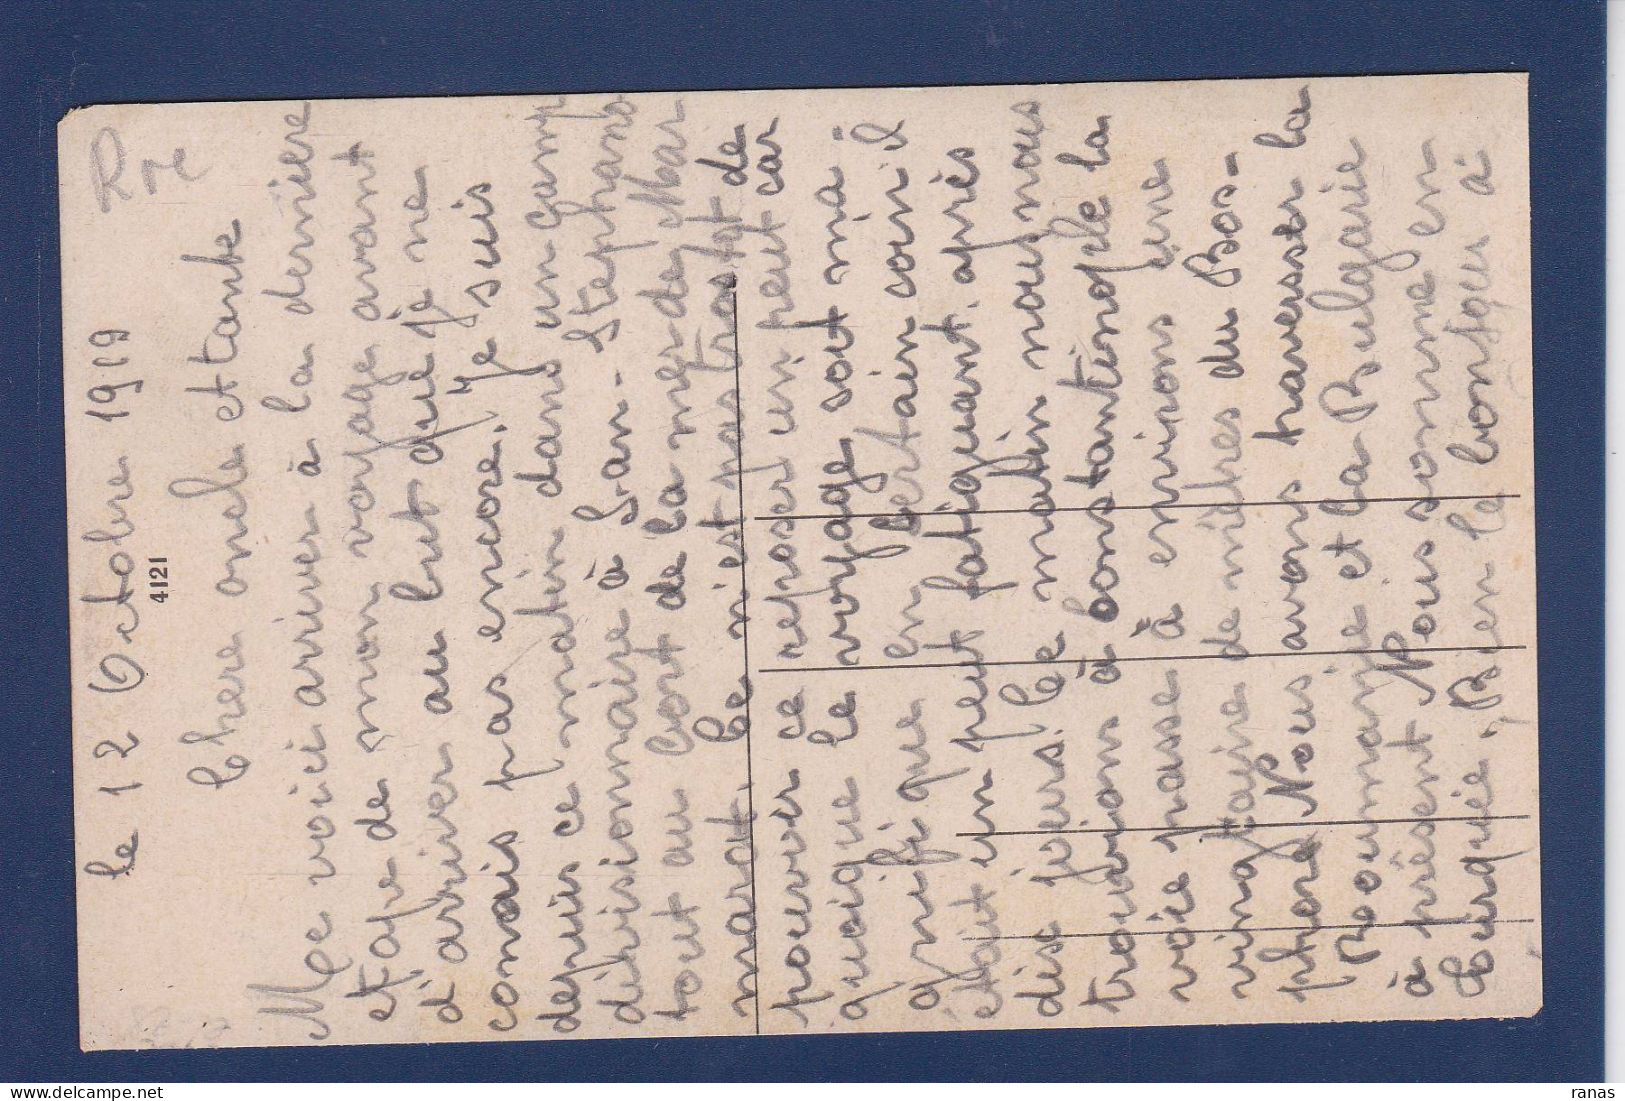 le 12 Octobre 1919
Rre
4121
Chere oncle et tante
Me voici arriver à la derniere
etape de mon voyage avant
d'arriver au but que je ne
conais pas encore. Je suis
depuis ce matin dans un camp
divisionnaire à San-Stephano
tout au bort de la mer de Mar
marat. Ce n'est pas trop tot de
pouvoir ce reposer un peut car
quoique le voyage soit ma-
gnifique en certain coin il
etait un peut fatiguant. après
dix jours. Ce matin nous nous
trouvions à Constantinople la
voie passe à environs une
vingtaine de mètres du Bos-
phore Nous avons traverser la
Roumanie et la Bulgarie
à présent Nous somme en
Turquie, Bien le bonjour à
ranas